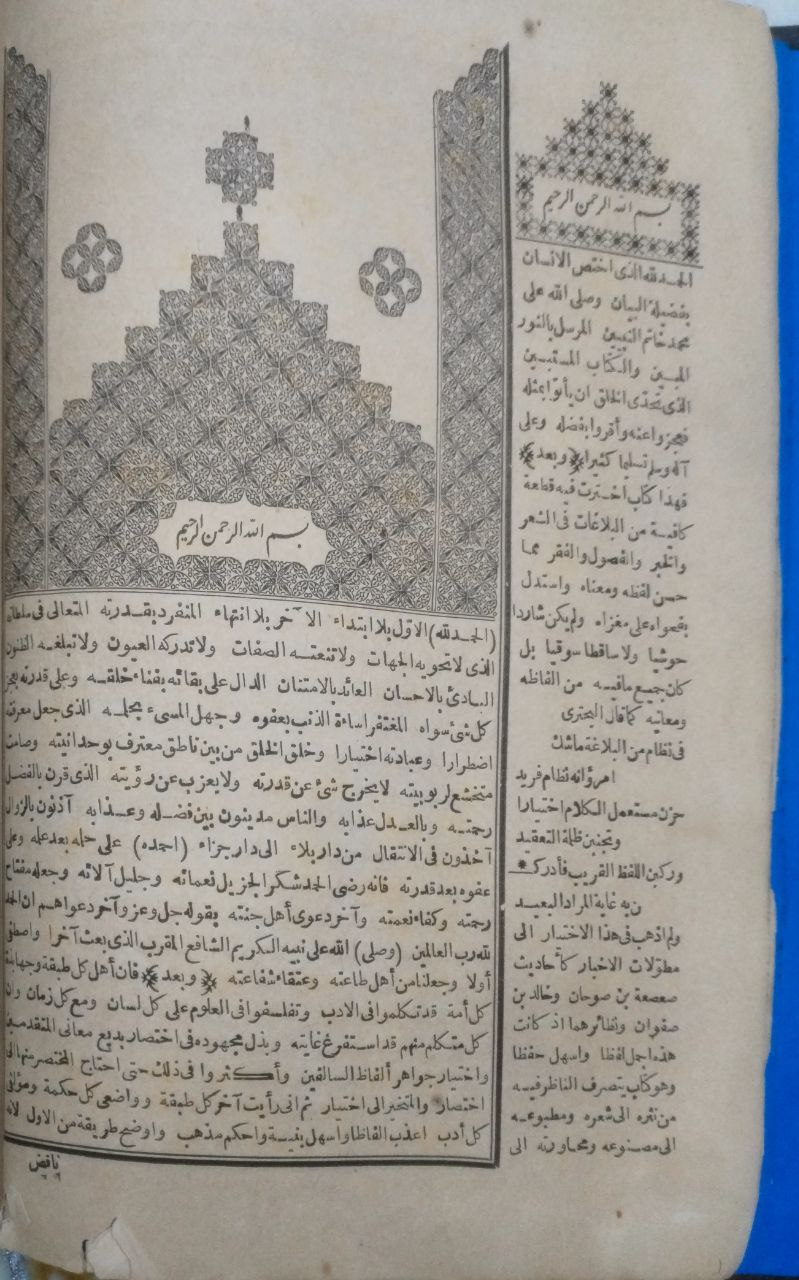 بسم الله الرحمن الرحيم
(الحمد لله) الاول بلا ابتداء الآخر بلا انتهاء المنفرد بقدرته المتعالى فى سلطانه
الذى لا تحويه الجهات ولا تنعته الصفات ولا تدركه العيون ولا تبلغه الظنون
البادئ بالاحسان العائد بالامتنان الدال على بقائه بفناء خلقه وعلى قدرته بعجز
كل شئ سواه المغتفر اساءة الذنب بعفوه وجهل المسىء بحلمه الذى جعل معرفته
اضطرارا وعبادته اختيارا وخلق الخلق من بين ناطق معترف بوحدانيته وصامت
متخشع لربوبيته لا يخرج شئ عن قدرته ولا يعزب عن رؤيته الذى قرن بالفضل
رحمته وبالعدل عذابه والناس مدينون بين فضله وعذابه آذنون بالزوال
آخذون فى الانتقال من دار بلاء الى دار جزاء (احمده) على حلمه بعد علمه وعلى
عفوه بعد قدرته فانه رضى الحمد شكرا لجزيل نعمائه وجليل آلائه وجعله مفتاح
رحمته وكفاء نعمته وآخر دعوى أهل جنته بقوله جل وعز وآخر دعواهم ان الحمد
لله رب العالمين (وصلى) الله على نبيه الكريم الشافع المقرب الذى بعث آخرا واصطفى
أولا وجعلنا من أهل طاعته وعتقاء شفاعته وبعد فان أهل كل طبقة وجهابذة
كل أمة قد تكلموا فى الادب وتفلسفوا فى العلوم على كل لسان ومع كل زمان وان
كل متكلم منهم قد استفرغ غايته وبذل مجهوده فى اختصار بديع معانى المتقدمين
واختيار جواهر ألفاظ السالفين وأكثروا فى ذلك حتى احتاج المختصر منها الى
اختصار والمتخير الى اختيار ثم انى رأيت آخر كل طبقة وواضعى كل حكمة ومؤلفى
كل أدب اعذب الفاظا واسهل بنية واحكم مذهب واوضح طريقة من الاول لانه
ناقض
بسم الله الرحمن الرحيم
الحمد لله الذى اختص الانسان
بفضيلة البيان وصلى الله على
محمد خاتم النبيين المرسل بالنور
المبين والكتاب المستبين
الذى تحدى الخلق ان يأتوا بمثله
فعجزوا عنه وأقروا بفضله وعلى
آله وسلم تسليما كثيرا وبعد
فهذا كتاب اخترت فيه قطعة
كافية من البلاغات فى الشعر
والخبر والفصول والفقر مما
حسن لفظه ومعناه واستدل
بفحواه على مغزاه ولم يكن شاردا
حوشيا ولا ساقطا سوقيا بل
كان جميع ما فيه من الفاظه
ومعانيه كما قال البحترى
فى نظام من البلاغة ما شك
امرؤ انه نظام فريد
حزن مستعمل الكلام اختيارا
وتجنبن ظلمة التعقيد
وركبن اللفظ القريب فأدرك
ن به غاية المراد البعيد
ولم اذهب فى هذا الاختيار الى
مطولات الاخبار كأحاديث
صعصعة بن صوحان وخالد بن
صفوان ونظائرهما اذ كانت
هذه اجمل لفظا واسهل حفظا
وهو كتاب يتصرف الناظر فيه
من نثره الى شعره ومطبوعه
الى مصنوعه ومحاورته الى